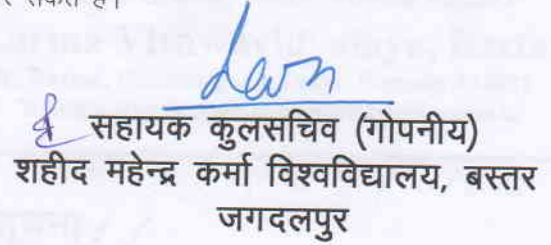 सकते हैं।
सहायक कुलसचिव (गोपनीय)
शहीद महेन्द्र कर्मा विश्वविद्यालय, बस्तर
जगदलपुर